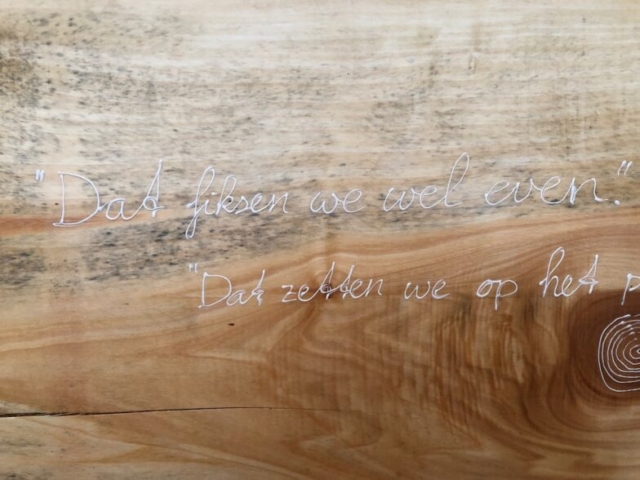 "Dat fiksen we wel even."
"Dat zetten we op het